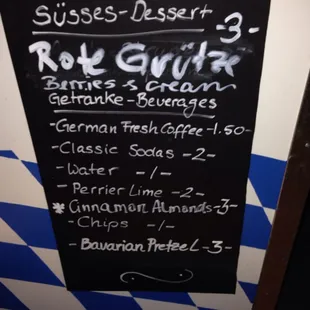 Süsses-Dessert
-3-
Rote Grütze
Berries & Cream
Getranke-Beverages
-German Fresh Coffee-1.50-
-Classic Sodas -2-
-Water -1-
-Perrier Lime -2-
*Cinnamon Almonds-3-
-Chips -1-
-Bavarian Pretzel-3-